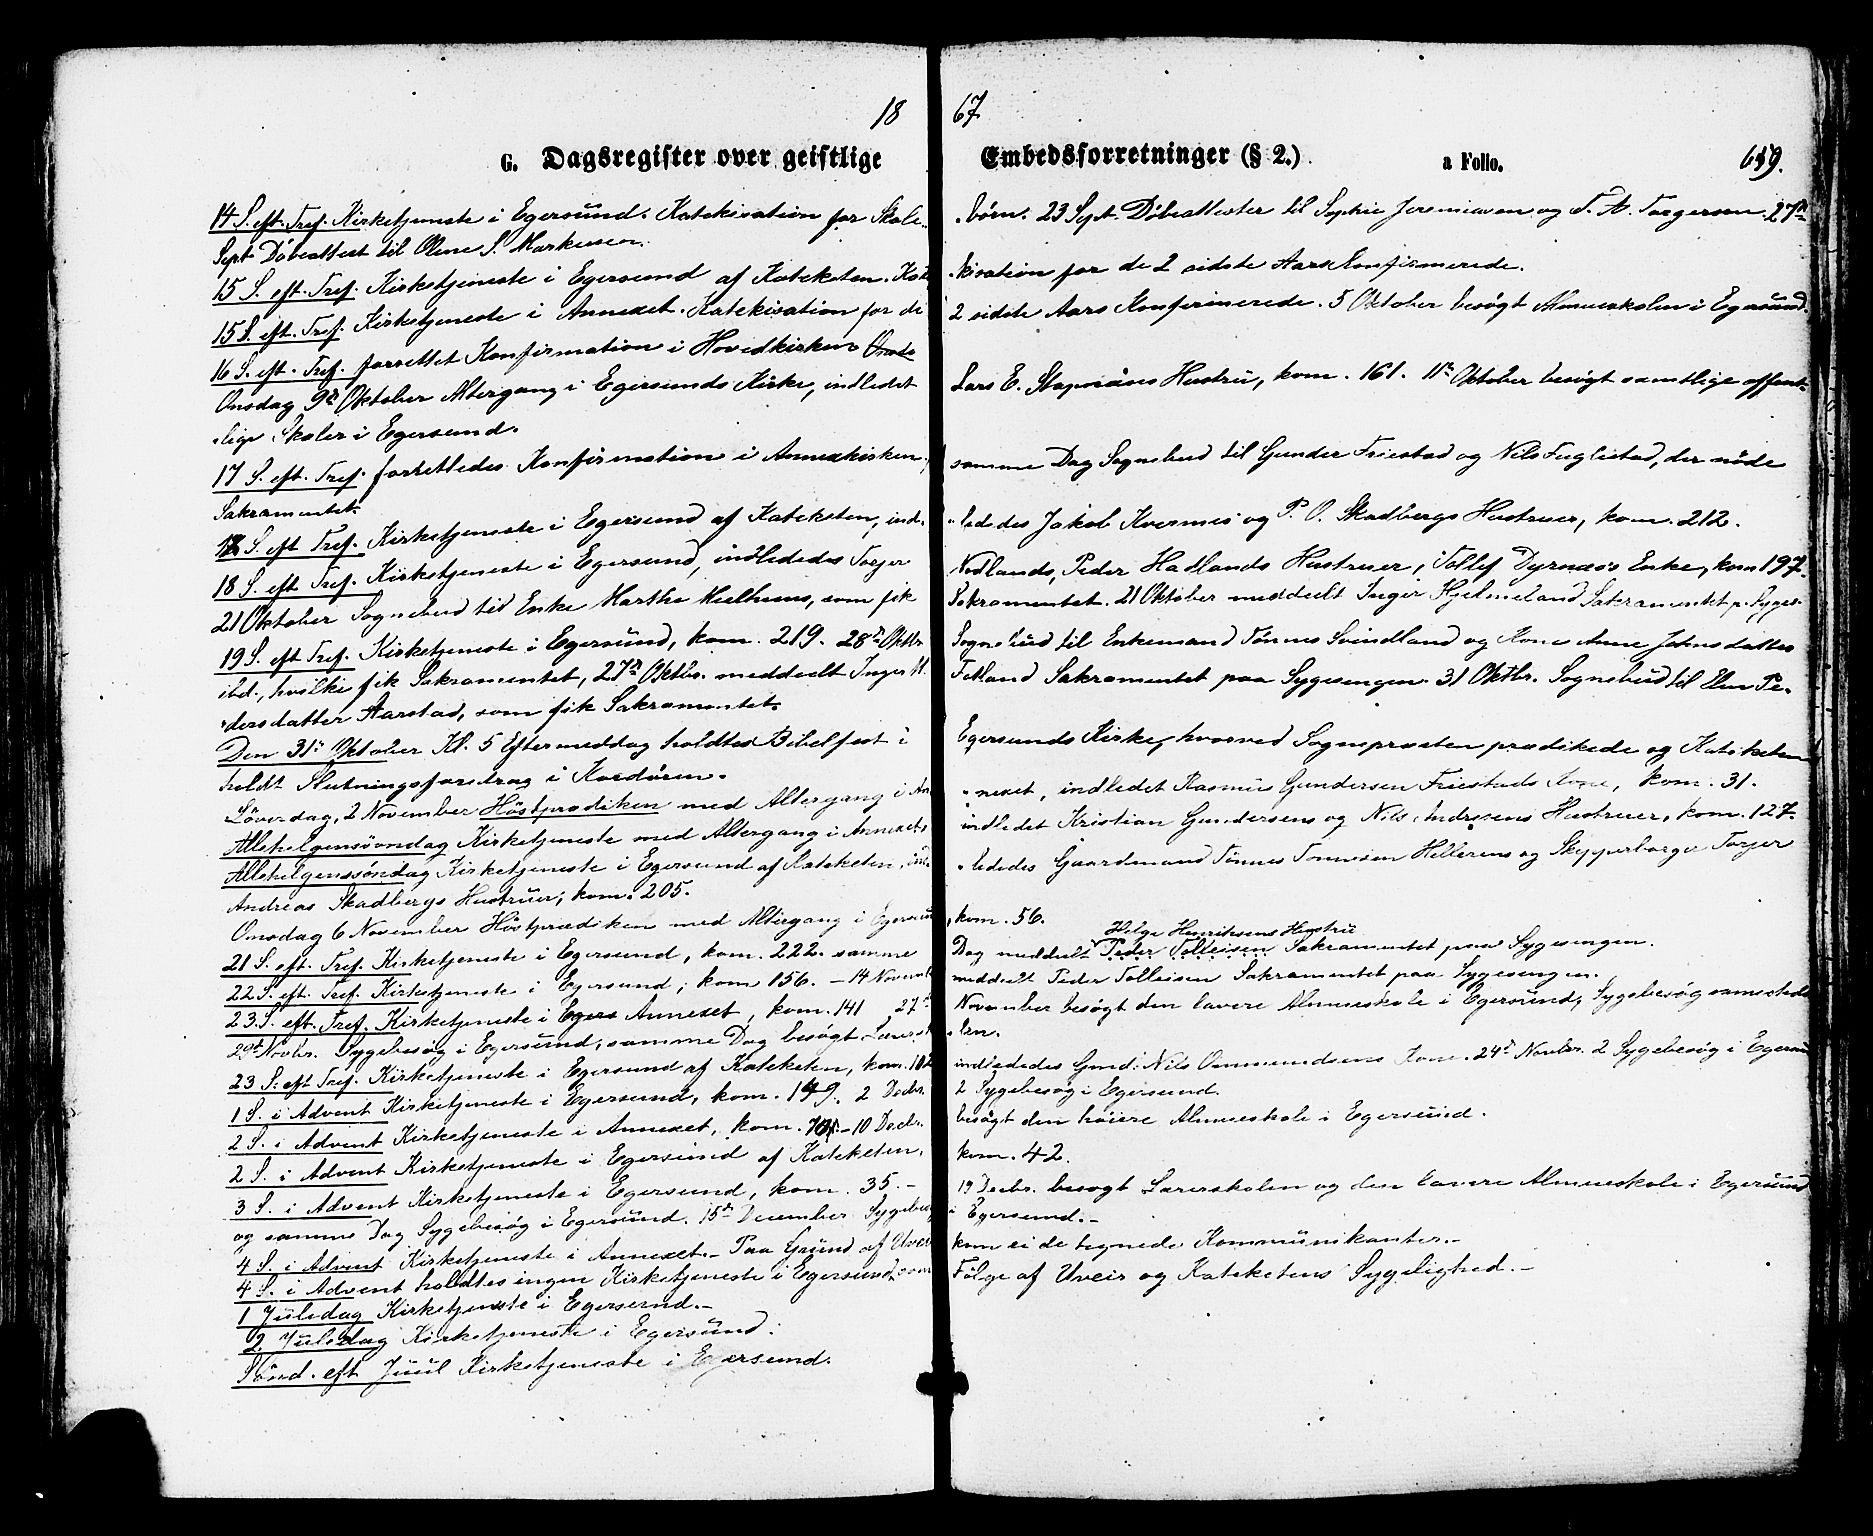 18 67
G. Dagsregister over geistlige Embedsforretninger (§ 2.) a Folio. 659.
14 S. eft. Tref. Kirketjeneste i Egersund. Katekisation for Skole-
børn. 23 Sept. Døbeattester til Sophie Jeremiasen og T. A. Torgersen. 27de
Sept Døbeattest til Olene S. Markussen.
15 S. eft. Tref. Kirketjeneste i Egersund af Kateketen. Kate
kisation for de 2 sidste Aars Konfirmerede.
15 S. eft. Tref. Kirketjeneste i Annexet. Katekisation for de
2 sidste Aars Konfirmerede. 5 Oktober besøgt Almueskolen i Egersund.
16 S. eft. Tref. forrettet Konfirmation i Hovedkirken Onsda
Onsdag 9de Oktober Altergang i Egersunds Kirke, indledet
Lars E. Stapnæses Hustru, kom. 161. 11te Oktober besøgt samtlige offent-
lige Skoler i Egersund.
17 S. eft. Tref. forrettedes Konfirmation i Annexkirken,
samme Dag Sognebud til Gunder Friestad og Nils Fuglestad, der nøde
Sakramentet.
18 S. eft Tref. Kirketjeneste i Egersund af Kateketen, ind-
ledes Jakob Kvermes og P. O. Skadbergs Hustruer, kom. 212.
18 S. eft Tref. Kirketjeneste i Egersund, indledes Torjer
Nodlands, Peder Hadlands Hustruer, Tollef Dyrnæs's Enke, kom 197.
21 Oktober Sognebud til Enke Marthe Mælhuus, som fik
Sakramentet. 21 Oktober meddeelt Inger Hjelmeland Sakramentet p. Syges.
19 S. eft Tref. Kirketjeneste i Egersund, kom. 219. 28de Oktbr.
Sognebud til Enkemand Tønnes Svindland og Kone Anne Jahnsdatter
ibd., hvilke fik Sakramentet, 27de Oktbr. meddeelt Inger M.
Fotland Sakramentet paa Sygesengen. 31 Oktbr. Sognebud til Elen Pe-
dersdatter Aarstad, som fik Sakramentet.
Den 31te Oktober Kl. 5 Eftermeddag holdtes Bibelfest i
Egersunds Kirke, hvorved Sognepræsten prædikede og Kateketen
holdt Slutningsforedrag i Kordøren.
Løverdag, 2 November Høstprædiken med Altergang i An
nexet, indledet Rasmus Gundersen Friestads Kone, kom. 31.
Allehelgensøndag Kirketjeneste med Altergang i Annexet,
indledet Kristian Gundersens og Nils Andresens Hustruer, kom. 127.
Allehelgenssøndag Kirketjeneste i Egersund af Kateketen, ind-
ledes Gaardmand Tønnes Tønnesen Hellerens og Skipperborger Torjer
Andreas Skadbergs Hustruer, kom. 205.
Onsdag 6 November Høstprædiken med Altergang i Egersund
kom. 56.
21 S. eft. Tref. Kirketjeneste i Egersund, kom. 222. samme
Helge Henriksens Hustru
Dag meddelt Peder Tolleisen Sakramentet paa Sygesengen.
22 S. eft. Tref. Kirketjeneste i Egersund, kom 156. – 14 Novemb
meddelt Peder Tolleisen Sakramentet paa Sygesengen.
23. S. eft. Tref. Kirketjeneste i Egers Annexet, kom. 141 27de
November besøgt den lavere Almueskole i Egersund, Sygebesøg sammesteds
29de Novbr. Sygebesøg i Egersund, samme Dag besøgt Lærersko
len.
23 S. eft Tref. Kirketjeneste i Egersund af Kateketen, kom. 102
indledes Gmd. Nils Ommundsens Kone. 24de Novbr. 2 Sygebesøg i Egersu
1 S. i Advent Kirketjeneste i Egersund, kom. 149. 2 Decbr.
2 Sygebesøg i Egersund.
2 S. i Advent Kirketjeneste i Annexet, kom. 70. – 10 Decbr.
besøgt den høiere Almueskole i Egersund.
2 S. i Advent Kirketjeneste i Egersund af Kateketen,
kom. 42.
3 S. i Advent Kirketjeneste i Egersund, kom. 35. –
19 Decbr. besøgt Lærerskolen og den lavere Almueskole i Egersund
og samme Dag Sygebesøg i Egersund. 15de December Sygebesøg
i Egersund. –
4 S. i Advent Kirketjeneste i Annexet. – Paa Grund af Uveir
kom ei de tegnede Kommunikanter. –
4 S. i Advent holdtes ingen Kirketjeneste i Egersund som
Følge af Uveir og Kateketens Sygelighed. –
1 Juledag Kirketjeneste i Egersund. –
2 Juledag Kirketjeneste i Egersund.
Sønd. eft Juul Kirketjeneste i Egersund.